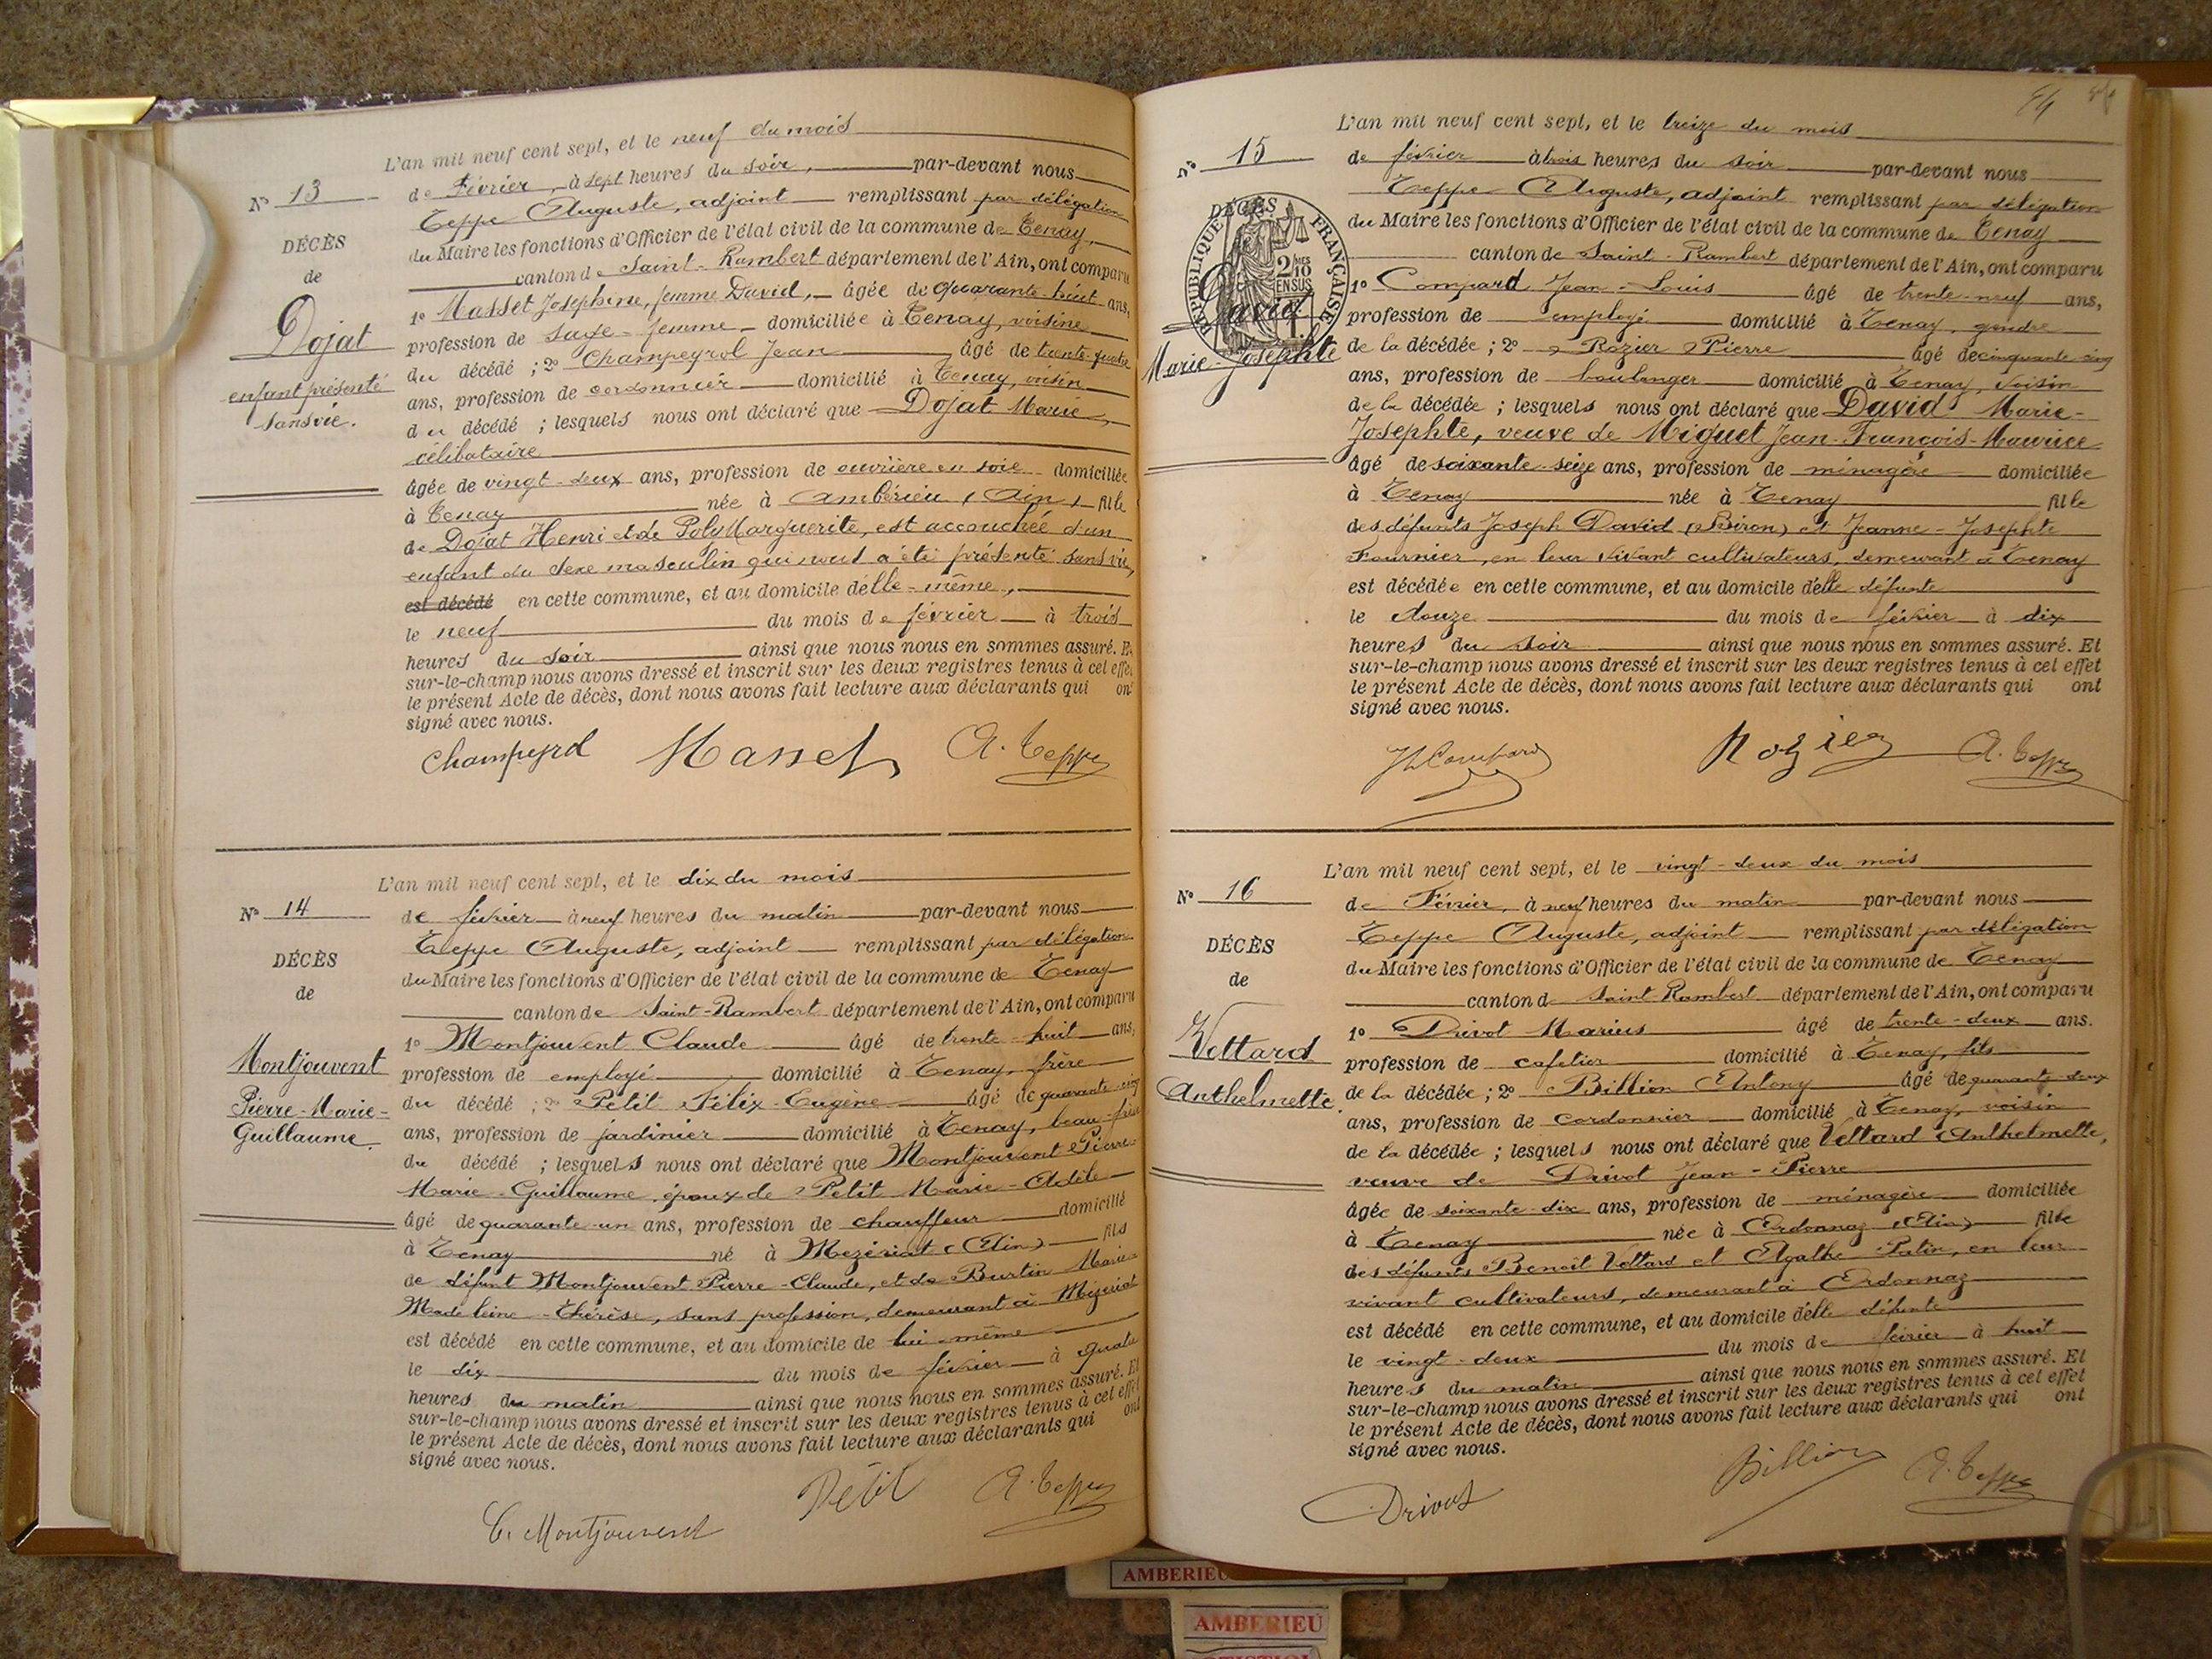 L'an mil neuf cent sept, et le neuf du mois
N° 13
de Février, à sept heures du soir, par-devant nous
Teppe Auguste, adjoint remplissant par délégation
DÉCÈS
du Maire les fonctions d'Officier de l'état civil de la commune de Tenay,
de
canton de Saint-Rambert département de l'Ain, ont comparu
1° Masset Joséphine, femme David, âgée de quarante-huit ans,
Dojat
profession de sage-femme domiciliée à Tenay, voisine
du décédé ; 2° Champeyrol Jean âgé de trente-quatre
enfant présenté
ans, profession de cordonnier domicilié à Tenay, voisin
sans vie.
du décédé ; lesquels nous ont déclaré que Dojat Marie,
célibataire
âgée de vingt-deux ans, profession de ouvrière en soie domiciliée
à Tenay née à Ambérieu (Ain) fille
de Dojat Henri et de Poly Marguerite, est accouchée d'un
enfant du sexe masculin qui nous a été présenté sans vie,
est décédé en cette commune, et au domicile d'elle-même,
le neuf du mois de février à trois
heures du soir ainsi que nous nous en sommes assuré. Et
sur-le-champ nous avons dressé et inscrit sur les deux registres tenus à cet effet
le présent Acte de décès, dont nous avons fait lecture aux déclarants qui ont
signé avec nous.
Champeyrol Masset A. Teppe
L'an mil neuf cent sept, et le dix du mois
N° 14
de février à neuf heures du matin par-devant nous
Teppe Auguste, adjoint remplissant par délégation
DÉCÈS
du Maire les fonctions d'Officier de l'état civil de la commune de Tenay
de
canton de Saint-Rambert département de l'Ain, ont comparu
1° Montjouvent Claude âgé de trente-huit ans,
Montjouvent
profession de employé domicilié à Tenay, frère
Pierre-Marie-
du décédé ; 2° Petit Félix-Eugène âgé de quarante-cinq
Guillaume.
ans, profession de jardinier domicilié à Tenay, beau-frère
du décédé ; lesquels nous ont déclaré que Montjouvent Pierre-
Marie-Guillaume, époux de Petit Marie-Adèle
âgé de quarante-un ans, profession de chauffeur domicilié
à Tenay né à Mézériat (Ain) fils
de défunt Montjouvent Pierre-Claude, et de Burtin Marie-
Madeleine-Thérèse, sans profession, demeurant à Mézériat
est décédé en cette commune, et au domicile de lui-même
le dix du mois de février à quatre
heures du matin ainsi que nous nous en sommes assuré. Et
sur-le-champ nous avons dressé et inscrit sur les deux registres tenus à cet effet
le présent Acte de décès, dont nous avons fait lecture aux déclarants qui ont
signé avec nous.
C. Montjouvent Petit A. Teppe
L'an mil neuf cent sept, et le treize du mois
N° 15
de février à trois heures du soir par-devant nous
Teppe Auguste, adjoint remplissant par délégation
du Maire les fonctions d'Officier de l'état civil de la commune de Tenay
DÉCÈS
RÉPUBLIQUE FRANÇAISE
2/10 EN SUS
canton de Saint-Rambert département de l'Ain, ont comparu
1° Compard Jean-Louis âgé de trente-neuf ans,
David
profession de employé domicilié à Tenay, gendre
Marie-Josephte
de la décédée ; 2° Rozier Pierre âgé de cinquante-cinq
ans, profession de boulanger domicilié à Tenay, voisin
de la décédée ; lesquels nous ont déclaré que David Marie-
Josephte, veuve de Miguet Jean-François-Maurice
âgé de soixante-seize ans, profession de ménagère domiciliée
à Tenay née à Tenay fille
des défunts Joseph David (Biron) et Jeanne-Josephte
Fournier, en leur vivant cultivateurs, demeurant à Tenay
est décédée en cette commune, et au domicile d'elle défunte
le douze du mois de février à dix
heures du soir ainsi que nous nous en sommes assuré. Et
sur-le-champ nous avons dressé et inscrit sur les deux registres tenus à cet effet
le présent Acte de décès, dont nous avons fait lecture aux déclarants qui ont
signé avec nous.
JL Compard Rozier A. Teppe
L'an mil neuf cent sept, et le vingt-deux du mois
N° 16
de Février, à neuf heures du matin par-devant nous
Teppe Auguste, adjoint remplissant par délégation
DÉCÈS
du Maire les fonctions d'Officier de l'état civil de la commune de Tenay
de
canton d Saint-Rambert département de l'Ain, ont comparu
1° Drivot Marius âgé de trente-deux ans.
Vettard
profession de cafetier domicilié à Tenay, fils
Anthelmette.
de la décédée ; 2° Billion Antony âgé de quarante-deux
ans, profession de cordonnier domicilié à Tenay, voisin
de la décédée ; lesquels nous ont déclaré que Vettard Anthelmette,
veuve de Drivot Jean-Pierre
âgée de soixante-dix ans, profession de ménagère domiciliée
à Tenay née à Ordonnaz (Ain) fille
des défunts Benoît Vettard et Agathe Patin, en leur
vivant cultivateurs, demeurant à Ordonnaz
est décédé en cette commune, et au domicile d'elle défunte
le vingt-deux du mois de février à huit
heures du matin ainsi que nous nous en sommes assuré. Et
sur-le-champ nous avons dressé et inscrit sur les deux registres tenus à cet effet
le présent Acte de décès, dont nous avons fait lecture aux déclarants qui ont
signé avec nous.
Drivot Billion A. Teppe
AMBERIEU
AMBERIEU